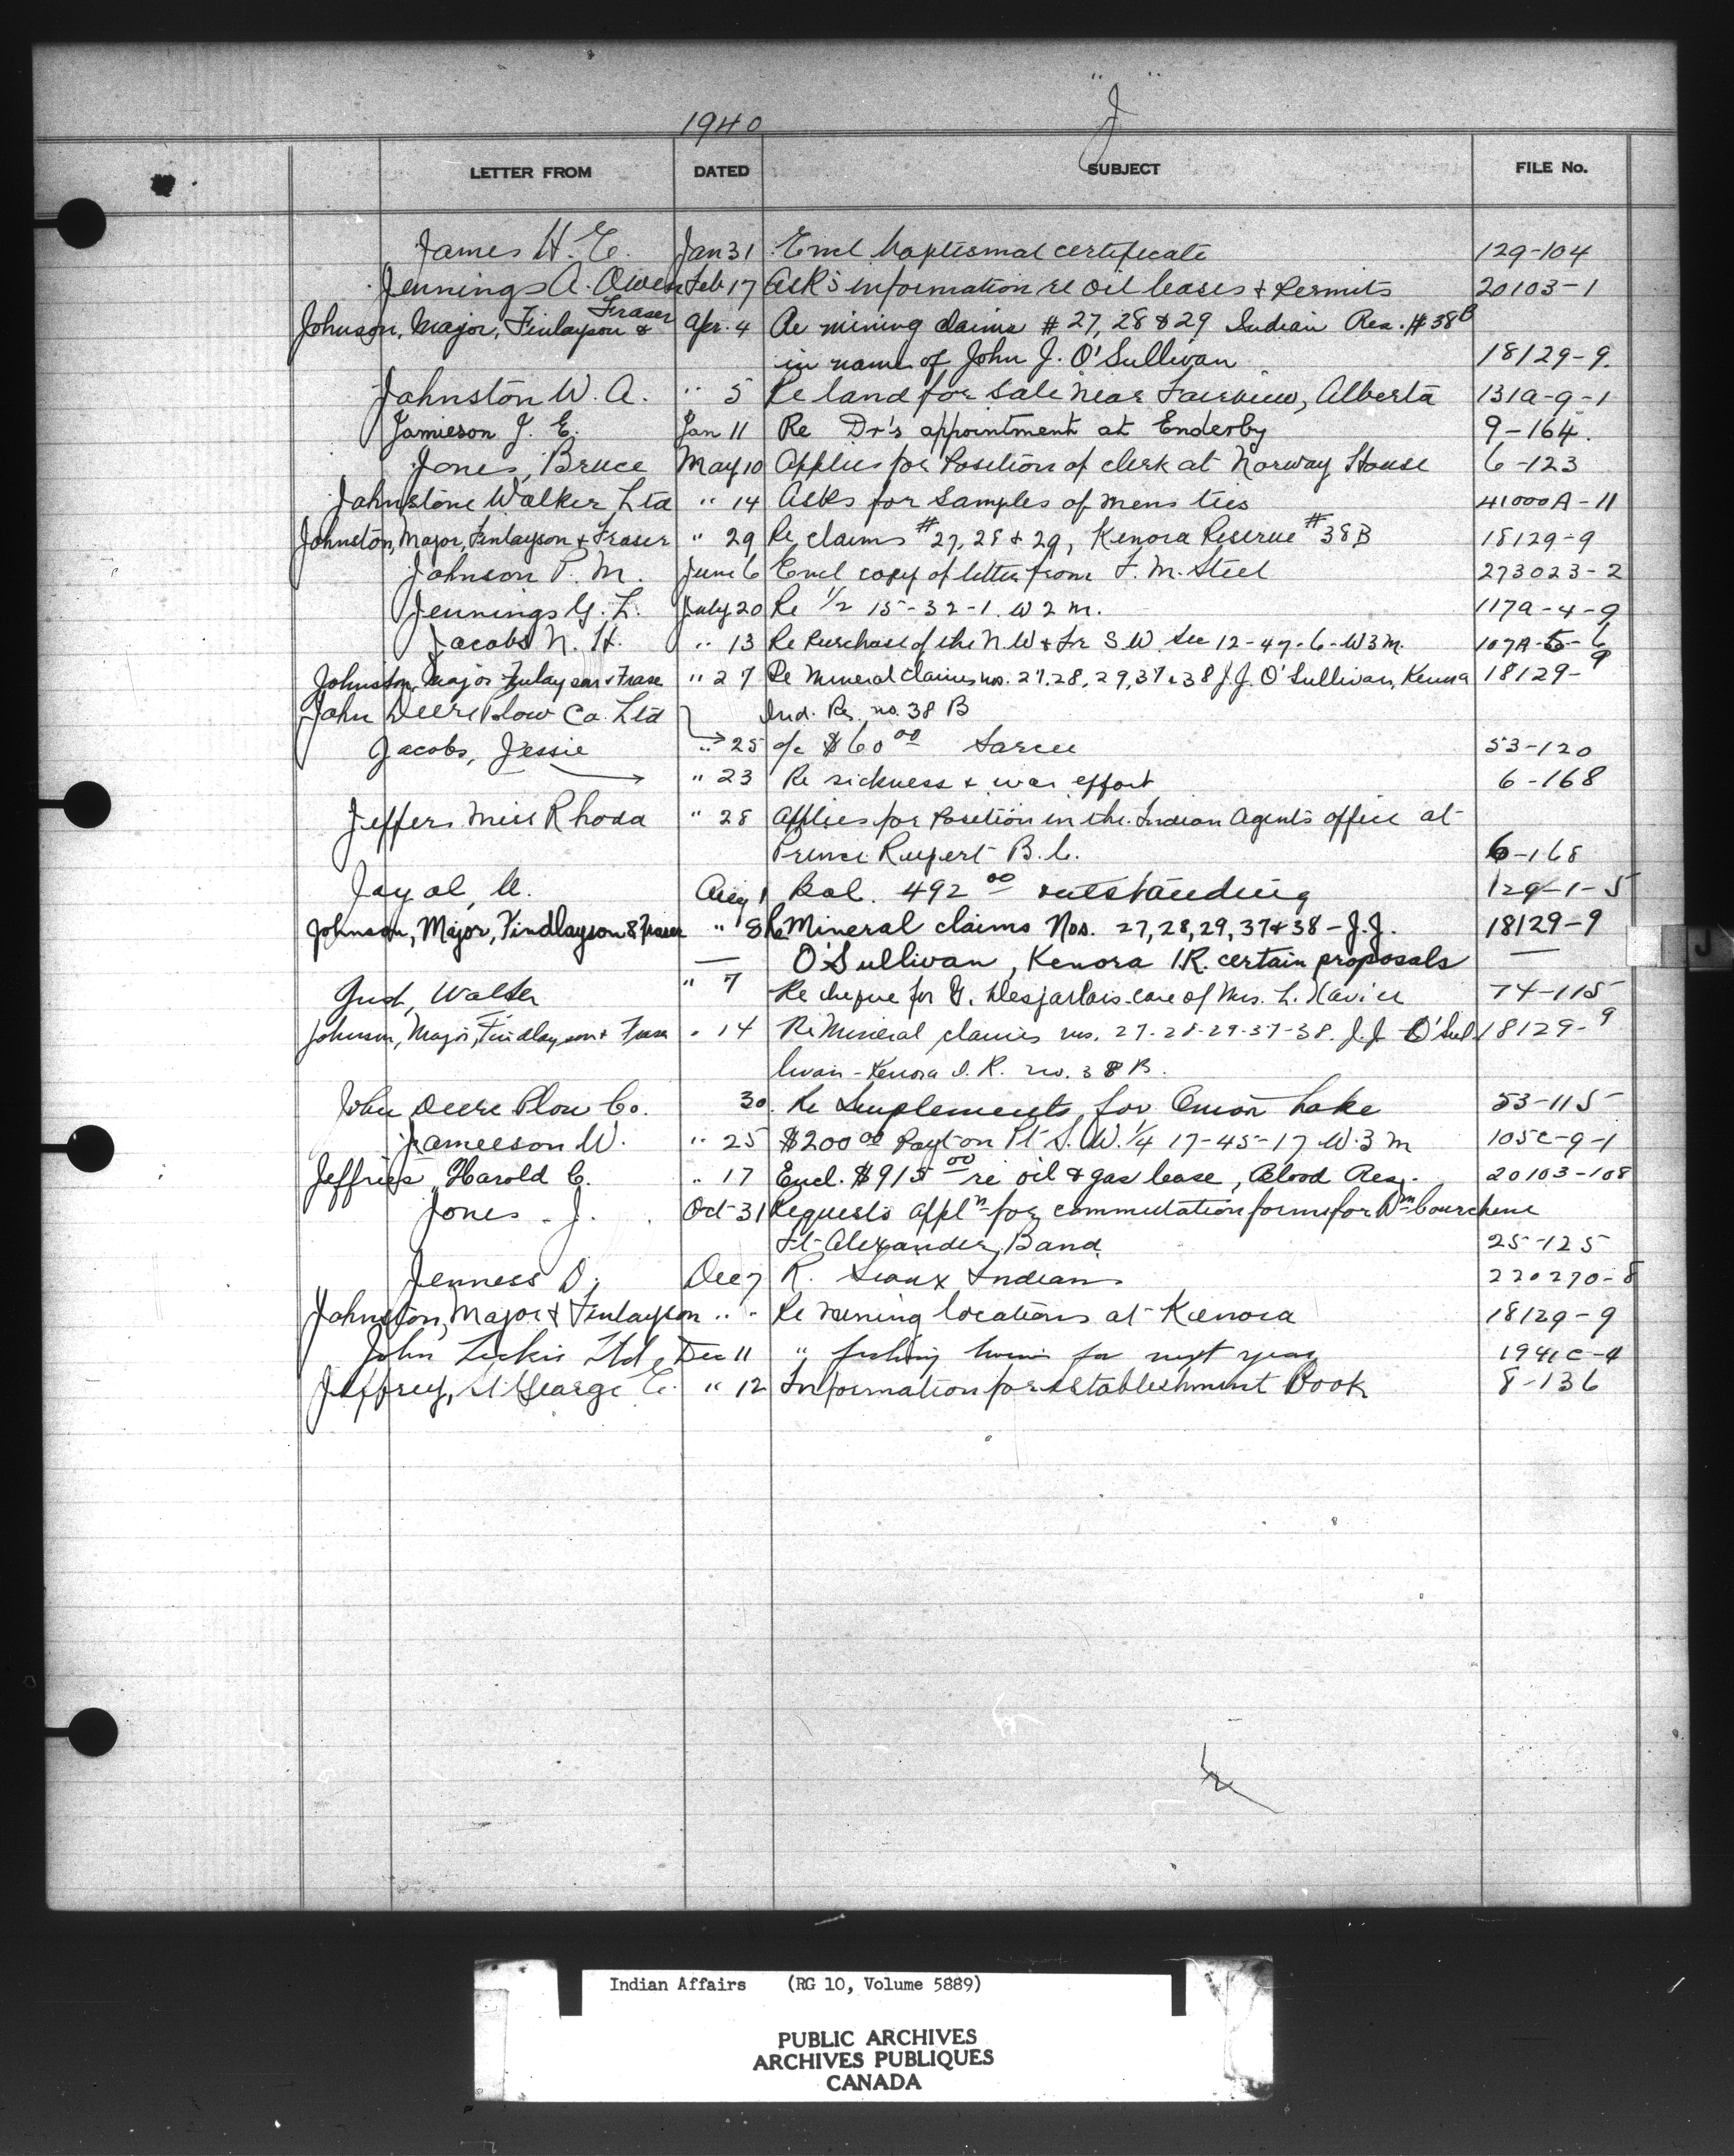 1940 "J"
LETTER FROM DATED SUBJECT FILE No.
James H. E. Jan 31 Encl baptismal certificate 129-104
Jennings A. Owen Feb 17 Asks information re oil leases & Permits 20103-1
Johnson, Major, Finlayson & Fraser Apr. 4 Re mining claims # 27, 28 & 29 Indian Res. # 38B
in name of John J. O'Sullivan 18129-9.
Johnston W. A. " 5 Re land for sale near Fairview, Alberta 131A-9-1
Jamieson J. E. Jan 11 Re Dr's appointment at Enderby 9-164.
Jones, Bruce May 10 Applies for Position of clerk at Norway House 6-123
Johnstone Walker Ltd " 14 Asks for Samples of mens ties 41000A-11
Johnston, Major, Finlayson & Fraser " 29 Re claims # 27, 28 & 29, Kenora Reserve # 38B 18129-9
Johnson P. M. June 6 Encl copy of letter from F. M. Steel 273023-2
Jennings G. L. July 20 Re 1/2 15-32-1. W 2 m. 117A-4-9
Jacobs N. H. " 13 Re Purchase of the N.W & Fr S.W. Sec 12-47-6-W3m. 107A-5-6
Johnston, Major Finlayson & Fraser " 27 Re Mineral Claims nos. 27.28, 29, 37 & 38 J.J. O'Sullivan, Kenora 18129-9
John Deere Plow Co. Ltd Ind. Res. no. 38 B
Jacobs, Jessie " 25 a/c $60 00 Sarcee 53-120
" 23 Re sickness & war effort 6-168
Jeffers Miss Rhoda " 28 Applies for Position in the Indian Agents office at
Prince Rupert B.C. 6-168
Jayal, Aug 1 Bal. 492 00 outstanding 129-1-5
Johnson, Major, Findlayson & Fraser " 8 Re Mineral claims Nos. 27, 28, 29, 37 & 38 - J.J. 18129-9
— O'Sullivan, Kenora I.R. certain proposals —
Walter " 7 Re cheque for G. Desjarlais care of Mrs. L. Xavier 74-115
Johnson, Major, Findlayson & Fraser " 14 Re Mineral claims nos. 27-28-29-37-38. J.J. O'Sul 18129-9
livan - Kenora I. R. no. 38 B.
John Deere Plow Co. 30. Re Implements for Onion Lake 53-115
Jameeson W. " 25 $200 00 Payt on Pt S.W. 1/4 17-45-17 W.3 m 105C-9-1
Jeffries Harold C. " 17 Encl. $915 00 re oil & gas lease, Blood Res. 20103-108
Jones - J. Oct 31 Requests appln for commutation forms for Wm Courchene
Ft Alexander Band 25-125
Jenness D. Dec 7 R. Sioux Indians 220270-8
Johnston, Major & Finlayson " " Re mining locations at Kenora 18129-9
John Leckie Ltd Dec 11 " fishing for next year 1941C-4
Jeffrey, St George E. " 12 Information for Establishment Book 8-136
J
Indian Affairs (RG 10, Volume 5889)
PUBLIC ARCHIVES
ARCHIVES PUBLIQUES
CANADA